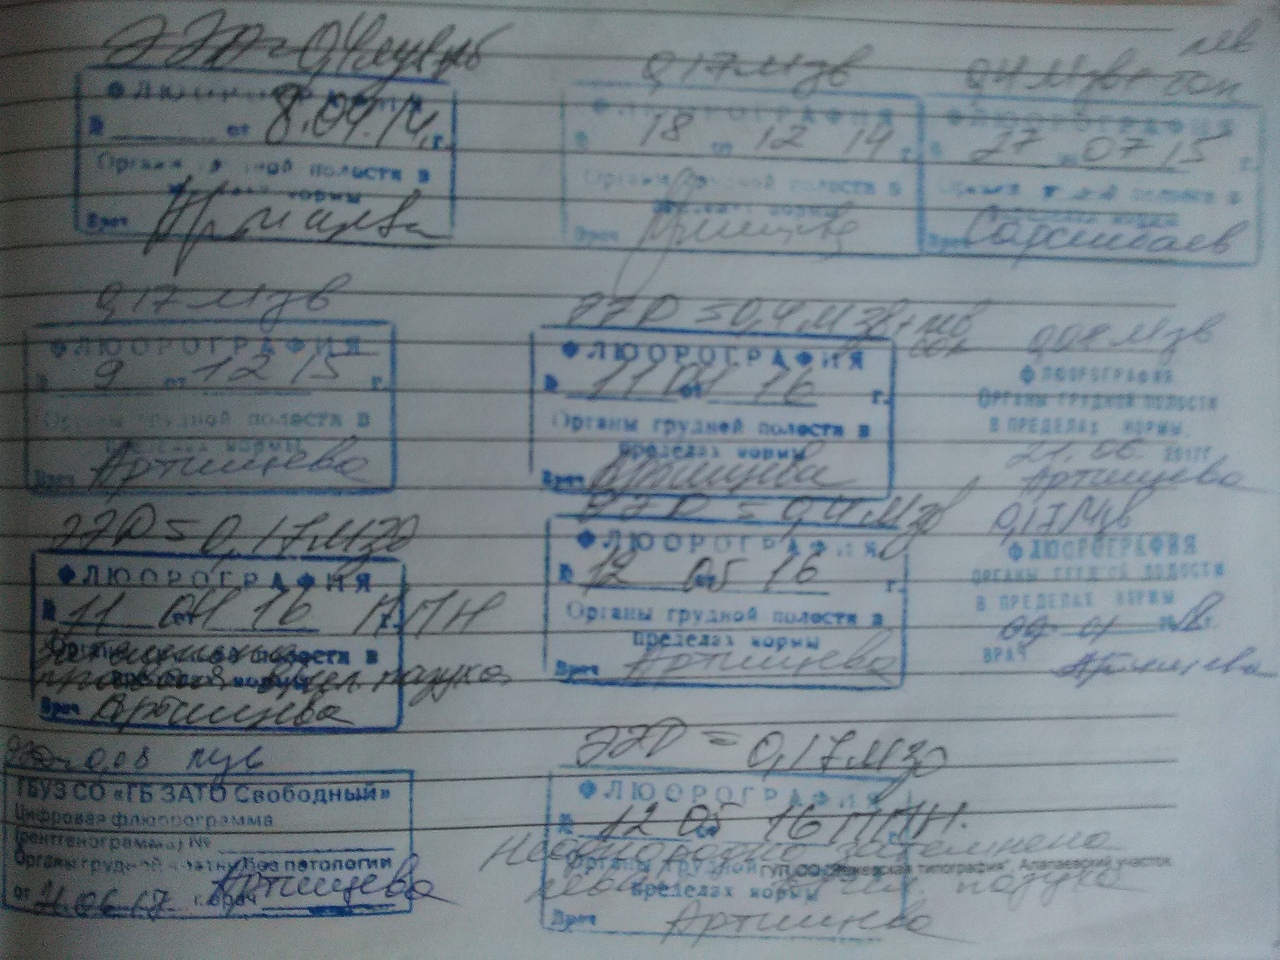 ЭЭД= 0,4мзв
ФЛЮОРОГРАФИЯ
№ от 8.04.14 г.
Органы грудной полости в
нормы
Врач
0,17 мзв
ФЛЮОРОГРАФИЯ
18 от 12 14 г.
Органы грудной полости в
пределах нормы
Врач
0,4 Мзв +
ФЛЮОРОГРАФИЯ
27 от 07 15 г.
Органы полости в
нормы
Врач
0,17 мзв
ФЛЮОРОГРАФИЯ
№ 9 от 12 15 г.
Органы грудной полости в
пределах нормы
Врач Артищева
ЭЭД = 0,4 Мзв +
ФЛЮОРОГРАФИЯ
№ 11 от 04 16 г.
Органы грудной полости в
пределах нормы
Врач Артищева
Мзв
ФЛЮОРОГРАФИЯ
ОРГАНЫ ГРУДНОЙ ПОЛОСТИ
В ПРЕДЕЛАХ НОРМЫ.
21.06 2017г
Артищева
ЭЭД = 0,17 Мзв
ФЛЮОРОГРАФИЯ
№ 11 от 04 16 г. ППН
Органы полости в
пределах нормы пазуха
Врач Артищева
ЭЭД = 0,4 Мзв
ФЛЮОРОГРАФИЯ
№ 12 от 05 16 г.
Органы грудной полости в
пределах нормы
Врач Артищева
0,17 Мзв
ФЛЮОРОГРАФИЯ
ОРГАНЫ ГРУДНОЙ ПОЛОСТИ
В ПРЕДЕЛАХ НОРМЫ
09 01 18 г.
ВРАЧ Артищева
0,08 мзв
ГБУЗ СО «ГБ ЗАТО Свободный»
Цифровая флюорограмма
(рентгенограмма) №
Органы грудной клетки без патологии
от 21.06.17 г. врач Артищева
ЭЭД = 0,17 Мзв
ФЛЮОРОГРАФИЯ
№ 12 05 16 ППН.
Неоднородно затемнена
Органы грудной
ГУП СО "Режевская типография" Алапаевский участок
пределах нормы пазуха
Врач Артищева